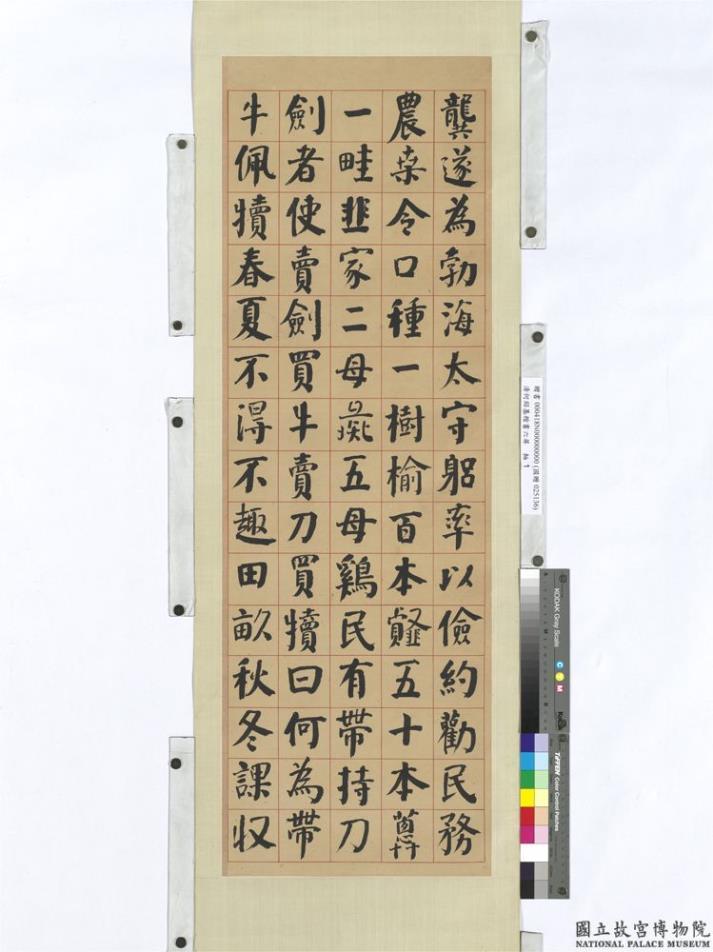 龔遂為勃海太守躳率以儉約勸民務
農桒令口種一樹榆百本五十本
一畦韭家二母彘五母鷄民有帶持刀
劍者使賣劍買牛賣刀買犢曰何為帶
牛佩犢春夏不得不趣田畝秋冬課収
贈書 000418N000000000 (國贈 025136)
清何紹基楷書六屏 軸
KODAK Gray Scale
C Y M
Kodak
TIFFEN Color Control Patches
國立故宮博物院
NATIONAL PALACE MUSEUM